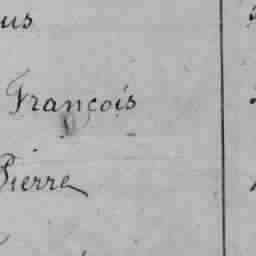 us
François
Pierre